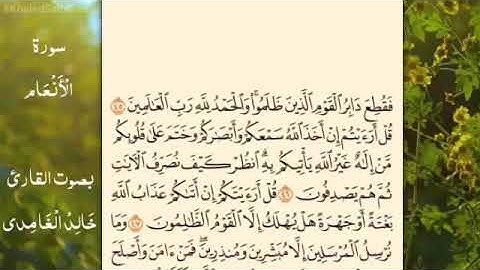 سورة
الأَنْعَام
بصوت القارئ
خَالِد الْغَامِدِي
فَقُطِعَ دَابِرُ الْقَوْمِ الَّذِينَ ظَلَمُوا وَالْحَمْدُ لِلَّهِ رَبِّ الْعَالَمِينَ ٤٥
قُلْ أَرَءَيْتُمْ إِنْ أَخَذَ اللَّهُ سَمْعَكُمْ وَأَبْصَٰرَكُمْ وَخَتَمَ عَلَىٰ قُلُوبِكُم
مَّنْ إِلَٰهٌ غَيْرُ اللَّهِ يَأْتِيكُم بِهِ انظُرْ كَيْفَ نُصَرِّفُ الْآيَٰتِ
ثُمَّ هُمْ يَصْدِفُونَ ٤٦ قُلْ أَرَءَيْتَكُمْ إِنْ أَتَىٰكُمْ عَذَابُ اللَّهِ
بَغْتَةً أَوْ جَهْرَةً هَلْ يُهْلَكُ إِلَّا الْقَوْمُ الظَّٰلِمُونَ ٤٧ وَمَا
نُرْسِلُ الْمُرْسَلِينَ إِلَّا مُبَشِّرِينَ وَمُنذِرِينَ فَمَنْ ءَامَنَ وَأَصْلَحَ